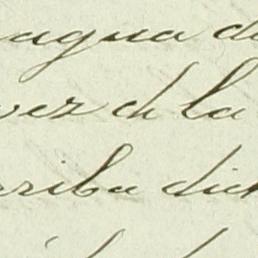 agua de
vez de la
ariba dich